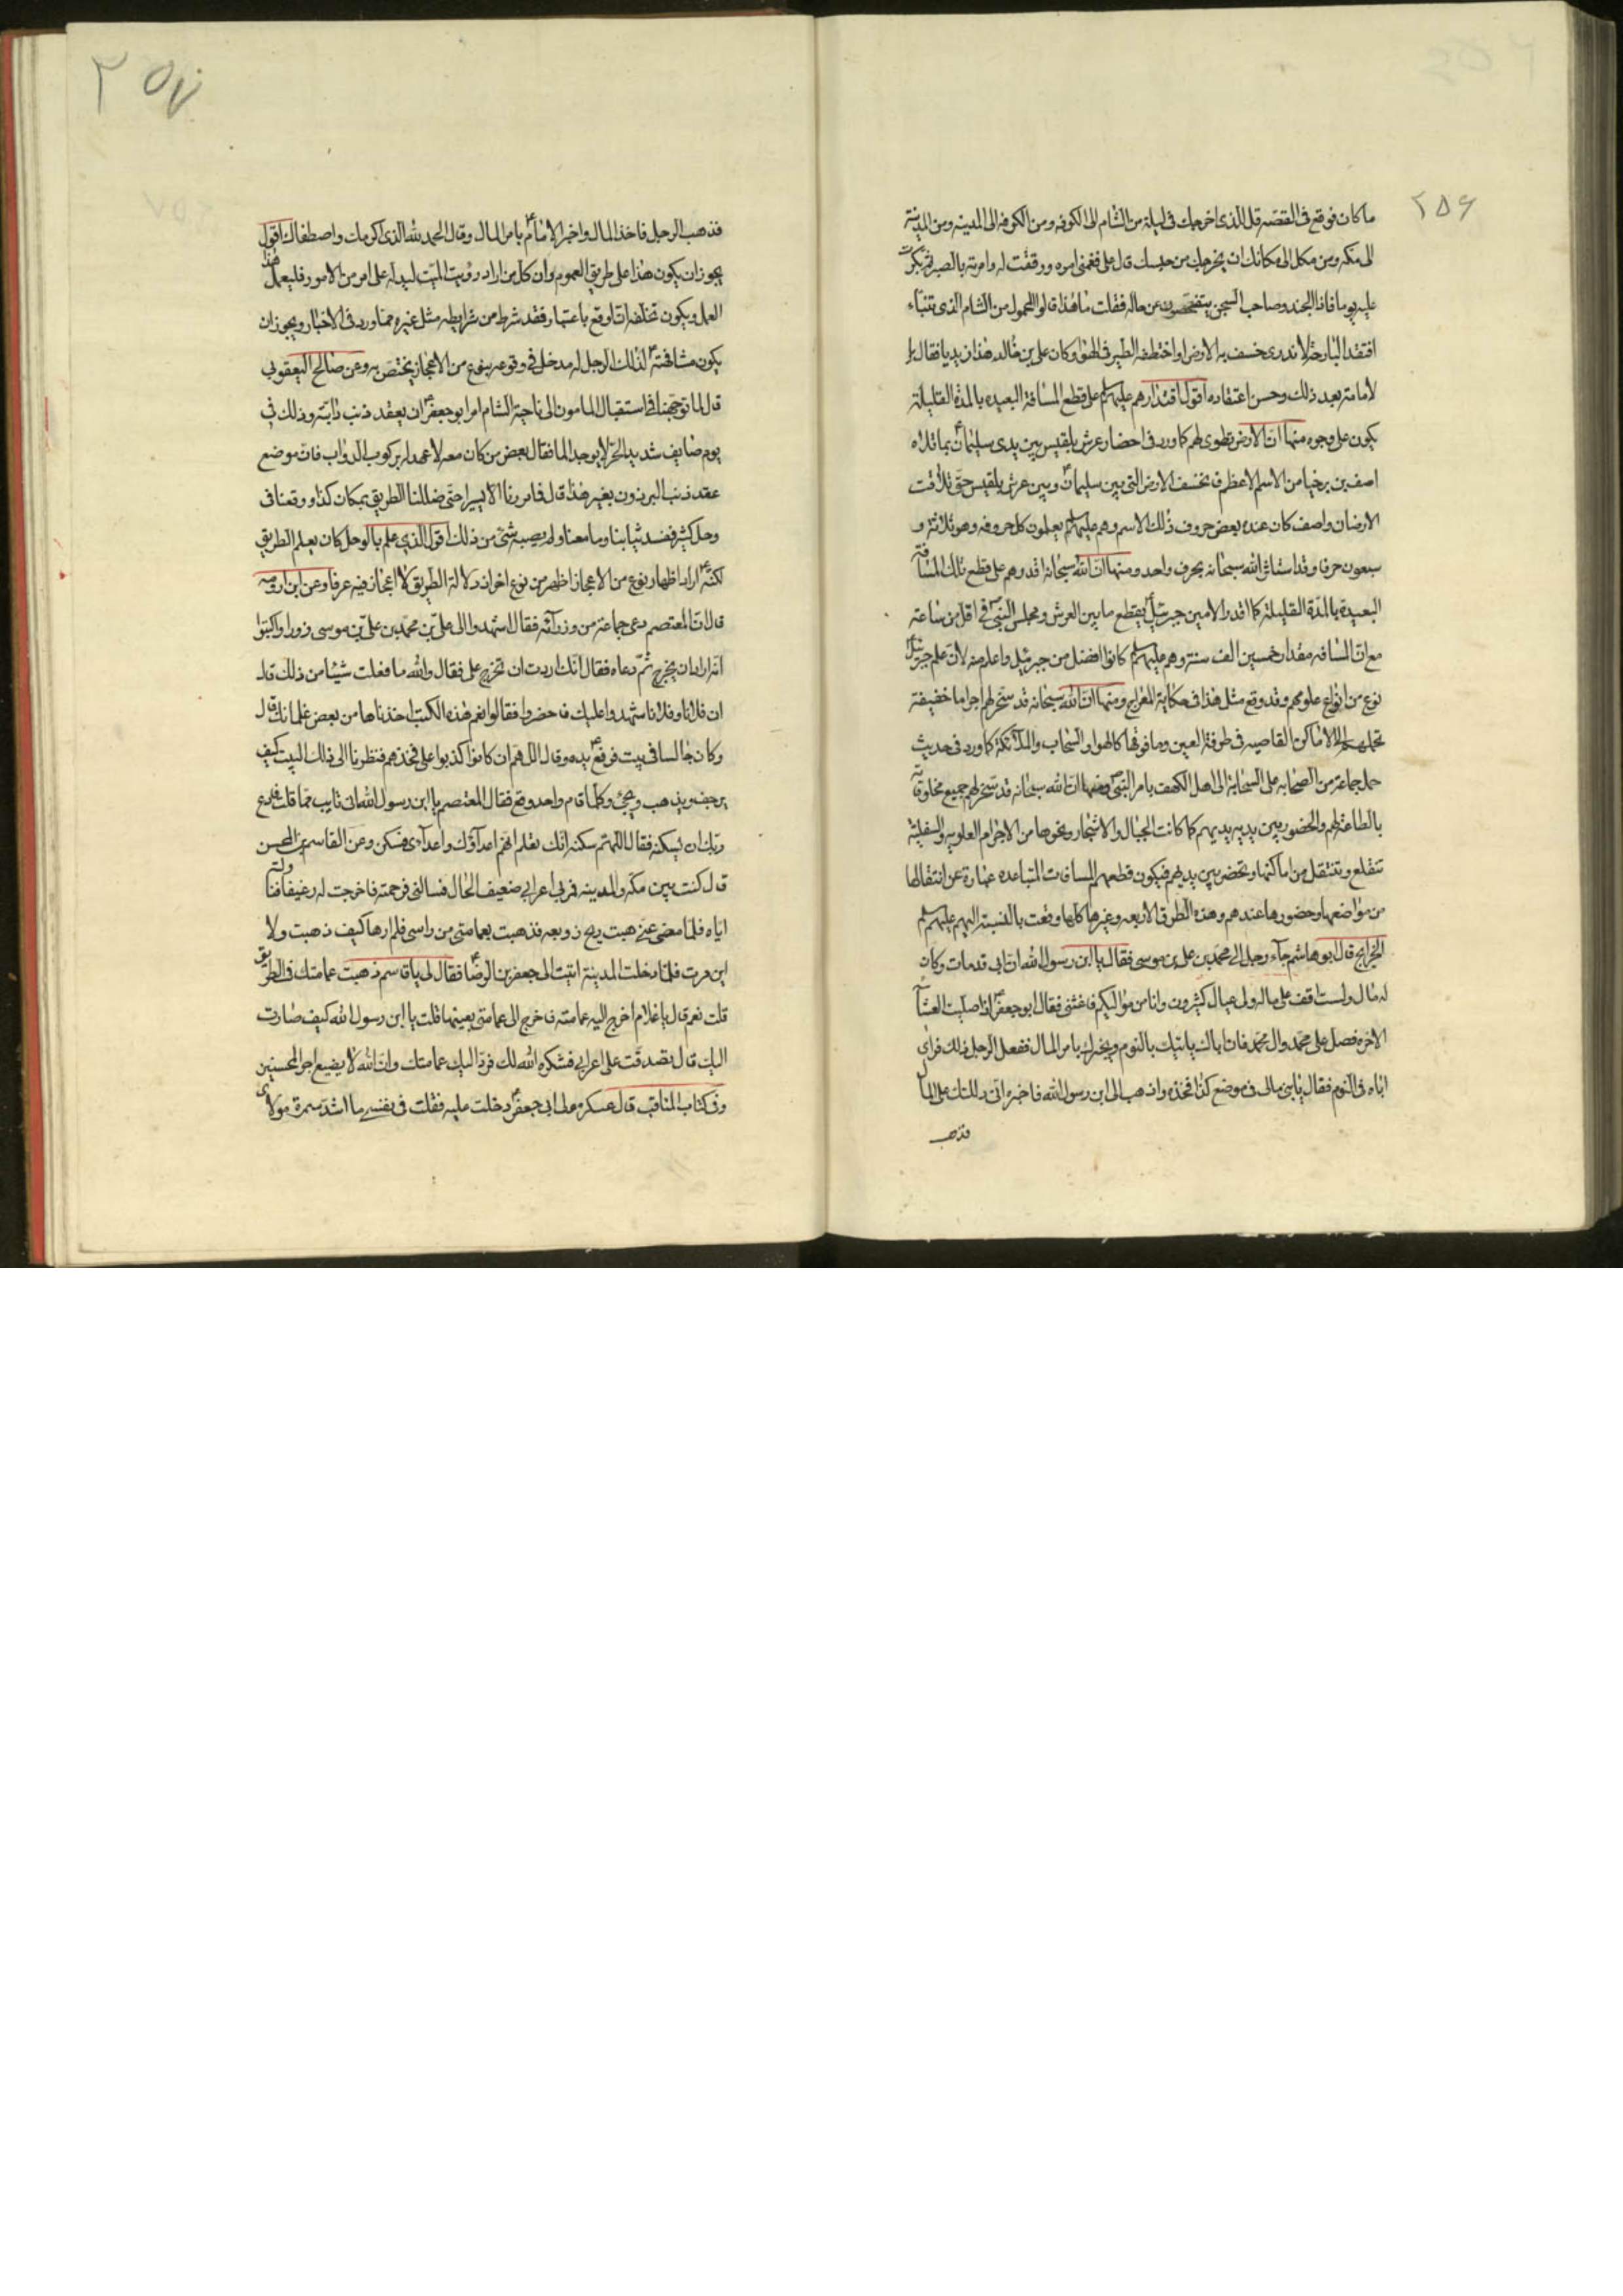 ٢٥۶
ما كان فوقع فى القصه قل للذى اخرجك فى ليلة من الشام الى الكوفه ومن الكوفه الى المدينه ومن المدينة
الى مكه ومن مكه الى مكانك ان يخرجك من حبسك قال على فغمنى امره ورققت له وامرته بالصبر ثم بكرت
عليه يوما فاذا الجند وصاحب السجن يتفحصون عن حاله فقلت ما هذا قالوا المحمول من الشام الذى تنبّاء
افتقد البارحة لا ندرى خسف به الارض او اختطفه الطير فى الهوا وكان على بن خالد هذا زيديا فقال با
لامامته بعد ذلك وحسن اعتقاده اقول اقتدارهم عليهم على قطع المسافة البعيده بالمدة القليلة
يكون على وجوه منها انّ الارض تطوى لهم كما ورد فى احضار عرش بلقيس بين يدى سليمان بما تلاه
اصف بن برخيا من الاسم الاعظم فانخسف الارض التى بين سليمان وبين عرش بلقيس حتّى تلاقت
الارضان واصف كان عنده بعض حروف ذلك الاسم وهم عليهم يعلمون كل حروفه وهو ثلاثة و
سبعون حرفا وقد استاثر الله سبحانه بحرف واحد ومنها انّ الله سبحانه اقدرهم على قطع تلك المسافة
البعيدة بالمدّة القليلة كما اقدر الامين جبرئيل بقطع ما بين العرش ومجلس النبى فى اقل من ساعة
مع انّ المسافه مقدار خمسين الف سنة وهم عليهم كانوا افضل من جبرئيل واعلم منه لانّ علم جبرئيل
نوع من انواع علومهم وقد وقع مثل هذا فى حكاية المعراج ومنها انّ الله سبحانه قد سخّر لهم اجراما خفيفة
تحملهم الى الاماكن القاصيه فى طرفة العين وما فوقها كالهواء والسّحاب والملآئكة كما ورد فى حديث
حمل جماعة من الصّحابه على السّحابة الى اهل الكهف بامر النبى ومنها انّ الله سبحانه قد سخّر لهم جميع مخلوقاته
بالطاعة لهم والحضور بين يديه يديهم كما كانت الجبال والاشجار ونحوها من الاجرام العلويه والسفلية
تنقلع وتنتقل من اماكنها وتحضر بين يديهم فيكون قطعهم المسافات المتباعده عبارة عن انتقالها
من مواضعها وحضورها عندهم وهذه الطرق الاربعه وغيرها كلها وقعت بالنسبة اليهم عليهم
الخرايج قال ابو هاشم جآء رجل الى محمّد بن على بن موسى فقال يا ابن رسول الله ان ابى قد مات وكان
له مال ولست اقف على ماله ولى عيال كثيرون وانا من مواليكم فاغثنى فقال ابو جعفر اذا صلّيت العشآ
الاخره فصل على محمّد وال محمّد فان اباك ياتيك بالنوم ويخبرك بامر المال ففعل الرجل ذلك فراى
اباه فى النوم فقال يا بنى مالى فى موضع كذا فخذه واذهب الى ابن رسول الله فاخبره انى دللتك على المال
فذهب
٢٥٧
فذهب الرجل فاخذ المال واخبر الامام بامر المال وقال الحمد لله الذى اكرمك واصطفاك اقول
يجوز ان يكون هذا على طريق العموم وان كل من اراد رؤيت الميّت ليدله على امر من الامور فليعمل هذا
العمل ويكون تخلّفه ان وقع باعتبار فقد شرط من شرايطه مثل غيره ممّا ورد فى الاخبار ويجوز ان
يكون مشافهته لذلك الرجل له مدخل فى وقوعه بنوع من الاعجاز يختصّ به وعن صالح اليعقوبى
قال لما توجّهنا فى استقبال المامون الى ناحية الشام امر ابو جعفر ان يعقد ذنب دابّته وذلك فى
يوم صايف شديد الحرّ لا يوجد الما فقال بعض من كان معه لا عهد له بركوب الدّواب فانّ موضع
عقد ذنب البرذون بغير هذا قال فما مررنا الّا يسيرا حتّى ضللنا الطريق بمكان كذا ووقعنا فى
وحل كثير ففسد ثيابنا وما معنا ولم يصبه شئ من ذلك اقول الذى علم بالوحل كان يعلم الطريق
لكنّه اراد اظهار نوع من الاعجاز اظهر من نوع اخر اذ دلالة الطريق لا اعجاز فيه عرفا وعن ابن ارومه
قال انّ المعتصم دعى جماعة من وزرآئه فقال اشهدوا لى على بن محمّد بن علىّ بن موسى زورا واكتبوا
انّه اراد ان يخرج ثمّ دعاه فقال انّك اردت ان تخرج على فقال والله ما فعلت شيئا من ذلك قال
ان فلانا وفلانا شهدوا عليك فاحضروا فقالوا نعم هذه الكتب اخذناها من بعض غلمانك قال
وكان جالسا فى بيت فرفع يده وقال اللّهم ان كانوا كذبوا على فخذهم فنظرنا الى ذلك البيت كيف
يرجف ويذهب ويجئ وكلما قام واحد وقع فقال المعتصم يا ابن رسول الله انى تايب ممّا قلت فادع
ربّك ان يسكنه فقال اللهمّ سكنه انّك تعلم انّهم اعدآؤك واعدآءى فسكن وعن القاسم بن المحسن
قال كنت بين مكه والمدينه فمر بى اعرابى ضعيف الحال فسالنى فرحمته فاخرجت له رغيفا فناولته
ايّاه فلمّا مضى عنّى هبت ريح زوبعه فذهبت بعمامتى من راسى فلم ارها كيف ذهبت ولا
اين مرت فلمّا دخلت المدينة اتيت الى جعفر بن الرضا فقال لى يا قاسم ذهبت عمامتك فى الطريق
قلت نعم قال يا غلام اخرج اليه عمامته فاخرج الى عمامتى بعينها قلت يا ابن رسول الله كيف صارت
اليك قال تصدقّت على اعرابى فشكره الله لك فردّ اليك عمامتك وانّ الله لا يضيع اجر المحسنين
وفى كتاب المناقب قال عسكر مولى ابى جعفر دخلت عليه فقلت فى نفسى ما اشدّ سمرة مولاى